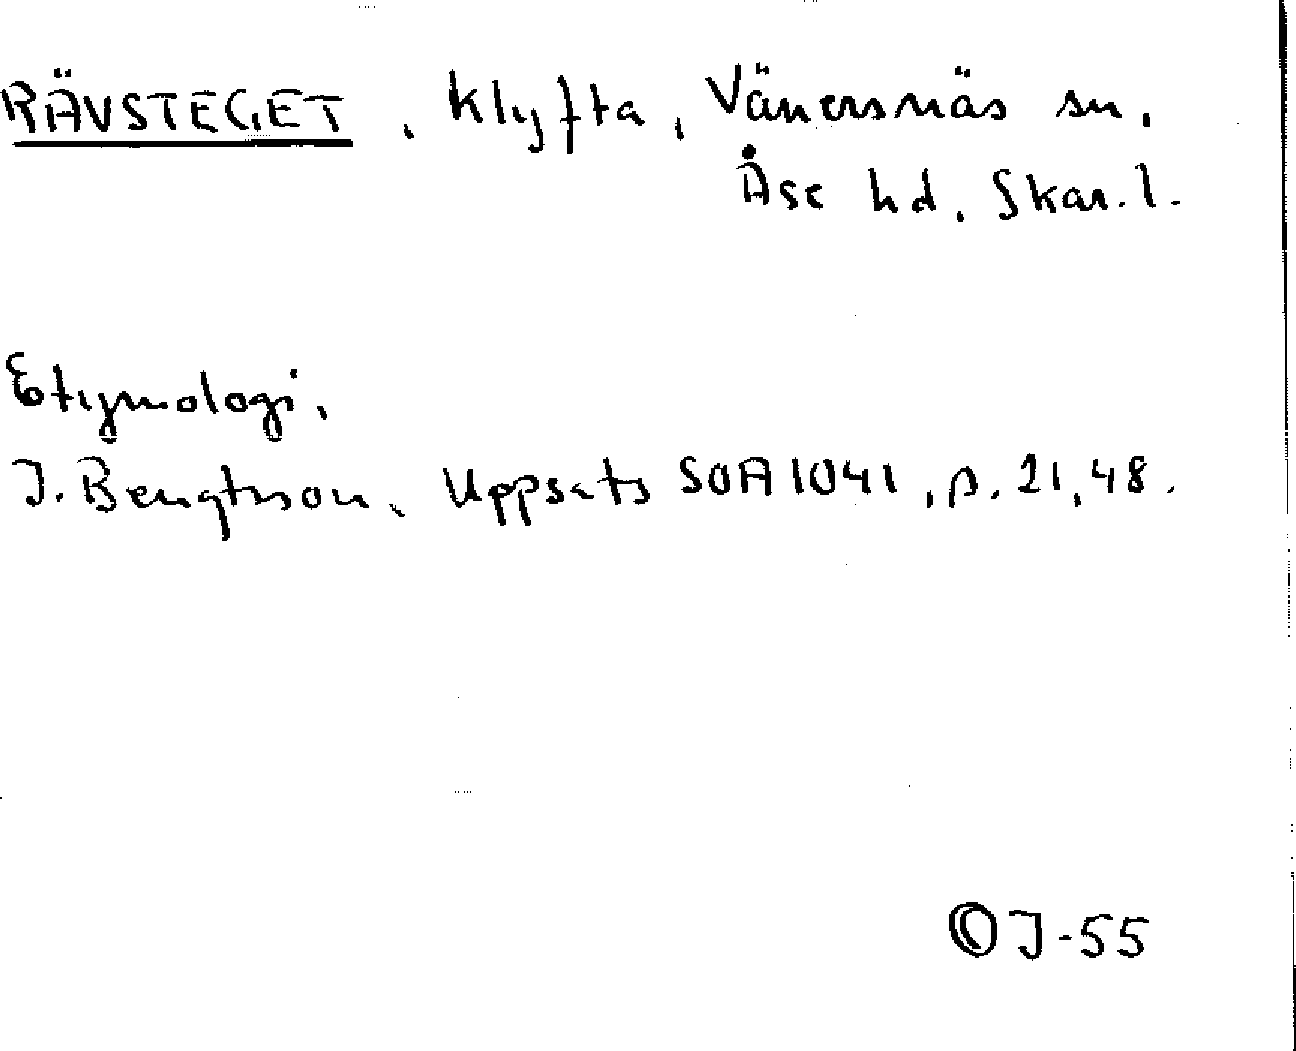 RÄVSTEGET, Klyfta, Vänersnäs sn,
Åse hd, Skar.l.
Etymologi,
I. Bengtsson, Uppsats SOA 1041, p. 21, 48.
OJ-55